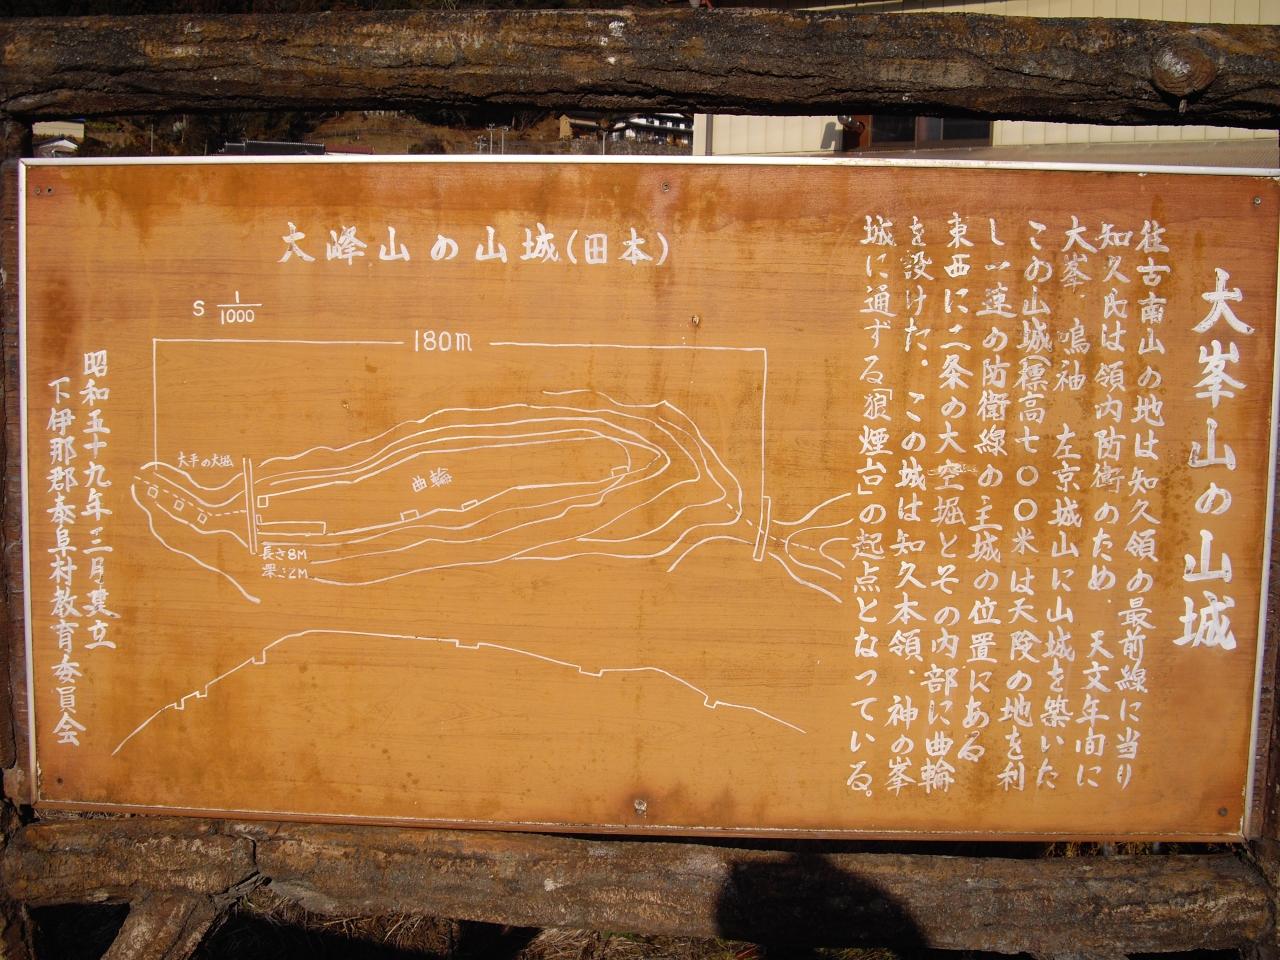 大峯山の山城
往古南山の地は知久領の最前線に当り
知久氏は領内防衛のため、天文年間に
大峯、鳴袖、左京城山に山城を築いた
この山城(標高七〇〇米)は天険の地を利
し一連の防衛線の主城の位置にある
東西に二条の大空堀とその内部に曲輪
を設けた。この城は知久本領、神の峯
城に通ずる「狼煙台」の起点となっている。
大峰山の山城(田本)
S 1/1000
180m
大手の大堀
曲輪
長さ8M
深さ2M
昭和五十九年三月建立
下伊那郡泰阜村教育委員会